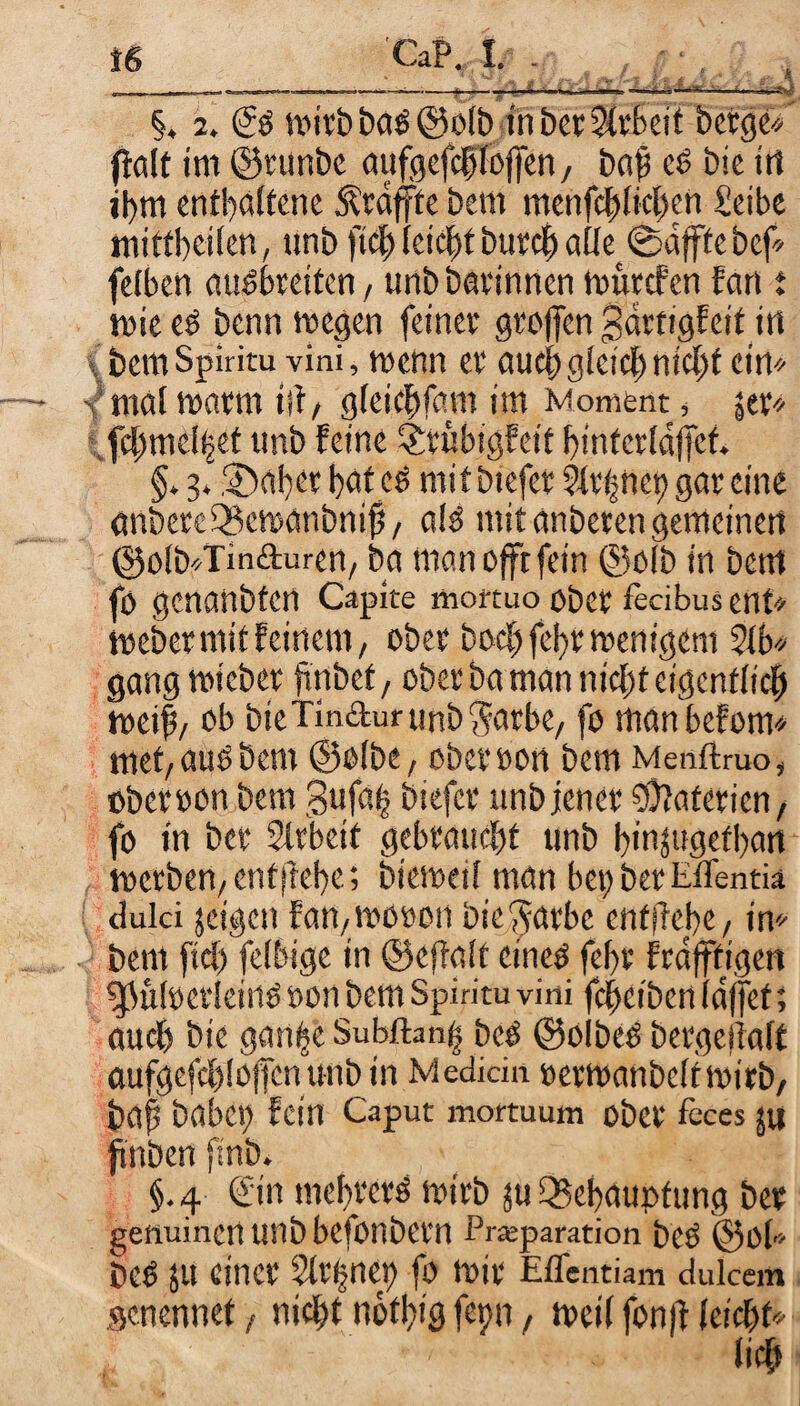 16 CaP. I.
§. 2. Es wird das Gold in der Arbeit derge-
stalt im Grunde aufgeschlossen, daß es die in
ihm enthaltene Kräffte dem menschlichen Leibe
mittheilen, und sich leicht durch alle Säffte des-
selben ausbreiten, und darinnen würcken kan:
wie es denn wegen seiner grossen Zärtigkeit in
dem Spiritu vini, wenn er auch gleich nicht ein-
mal warm ist, gleichsam im Moment, zer-
schmeltzet und keine Trübigkeit hinterlässet.
§. 3. Daher hat es mit dieser Artzney gar eine
andere Bewandniß, als mit anderen gemeinen
Gold-Tincturen, da man offt sein Gold in dem
so genandten Capite mortuo oder fecibus ent-
weder mit keinem, oder doch sehr wenigem Ab-
gang wieder findet, oder da man nicht eigentlich
weiß, ob die Tinctur und Farbe, so man bekom-
met, aus dem Golde, oder von dem Menstruo,
oder von dem Zusatz dieser und jener Materien,
so in der Arbeit gebraucht und hinzugethan
werden, entstehe; dieweil man bey der Essentia
dulci zeigen kan, wovon die Farbe entstehe, in-
dem sich selbige in Gestalt eines sehr kräfftigen
Pülverleins von dem Spiritu vini scheiden lässet;
auch die gantze Substantz des Goldes dergestalt
aufgeschlossen und in Medicin verwandelt wird,
daß dabey kein Caput mortuum oder feces zu
finden sind.
§. 4 Ein mehrers wird zu Behauptung der
genuinen und besondern Præparation des Gol-
des zu einer Artzney so wir Essentiam dulcem
genennet, nicht nöthig seyn, weil sonst leicht-
lich